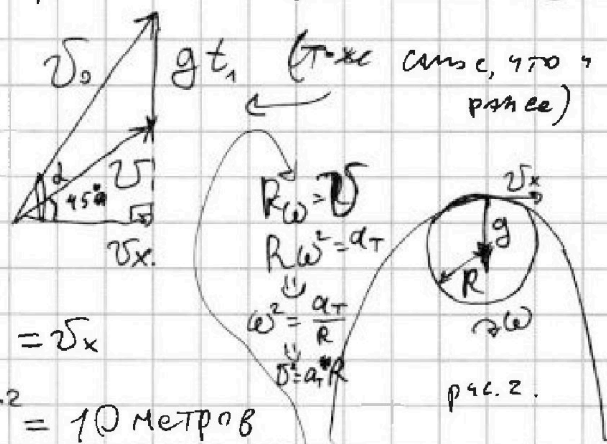 v₀ gt₁ (то же самое, что и
ранее)
α
45°
v
vₓ
Rω = v
Rω² = a_т
⇓
ω² = a_т/R
⇓
v² = a_т * R
vₓ
g
R
ω
рис. 2.
= vₓ
² = 10 метров